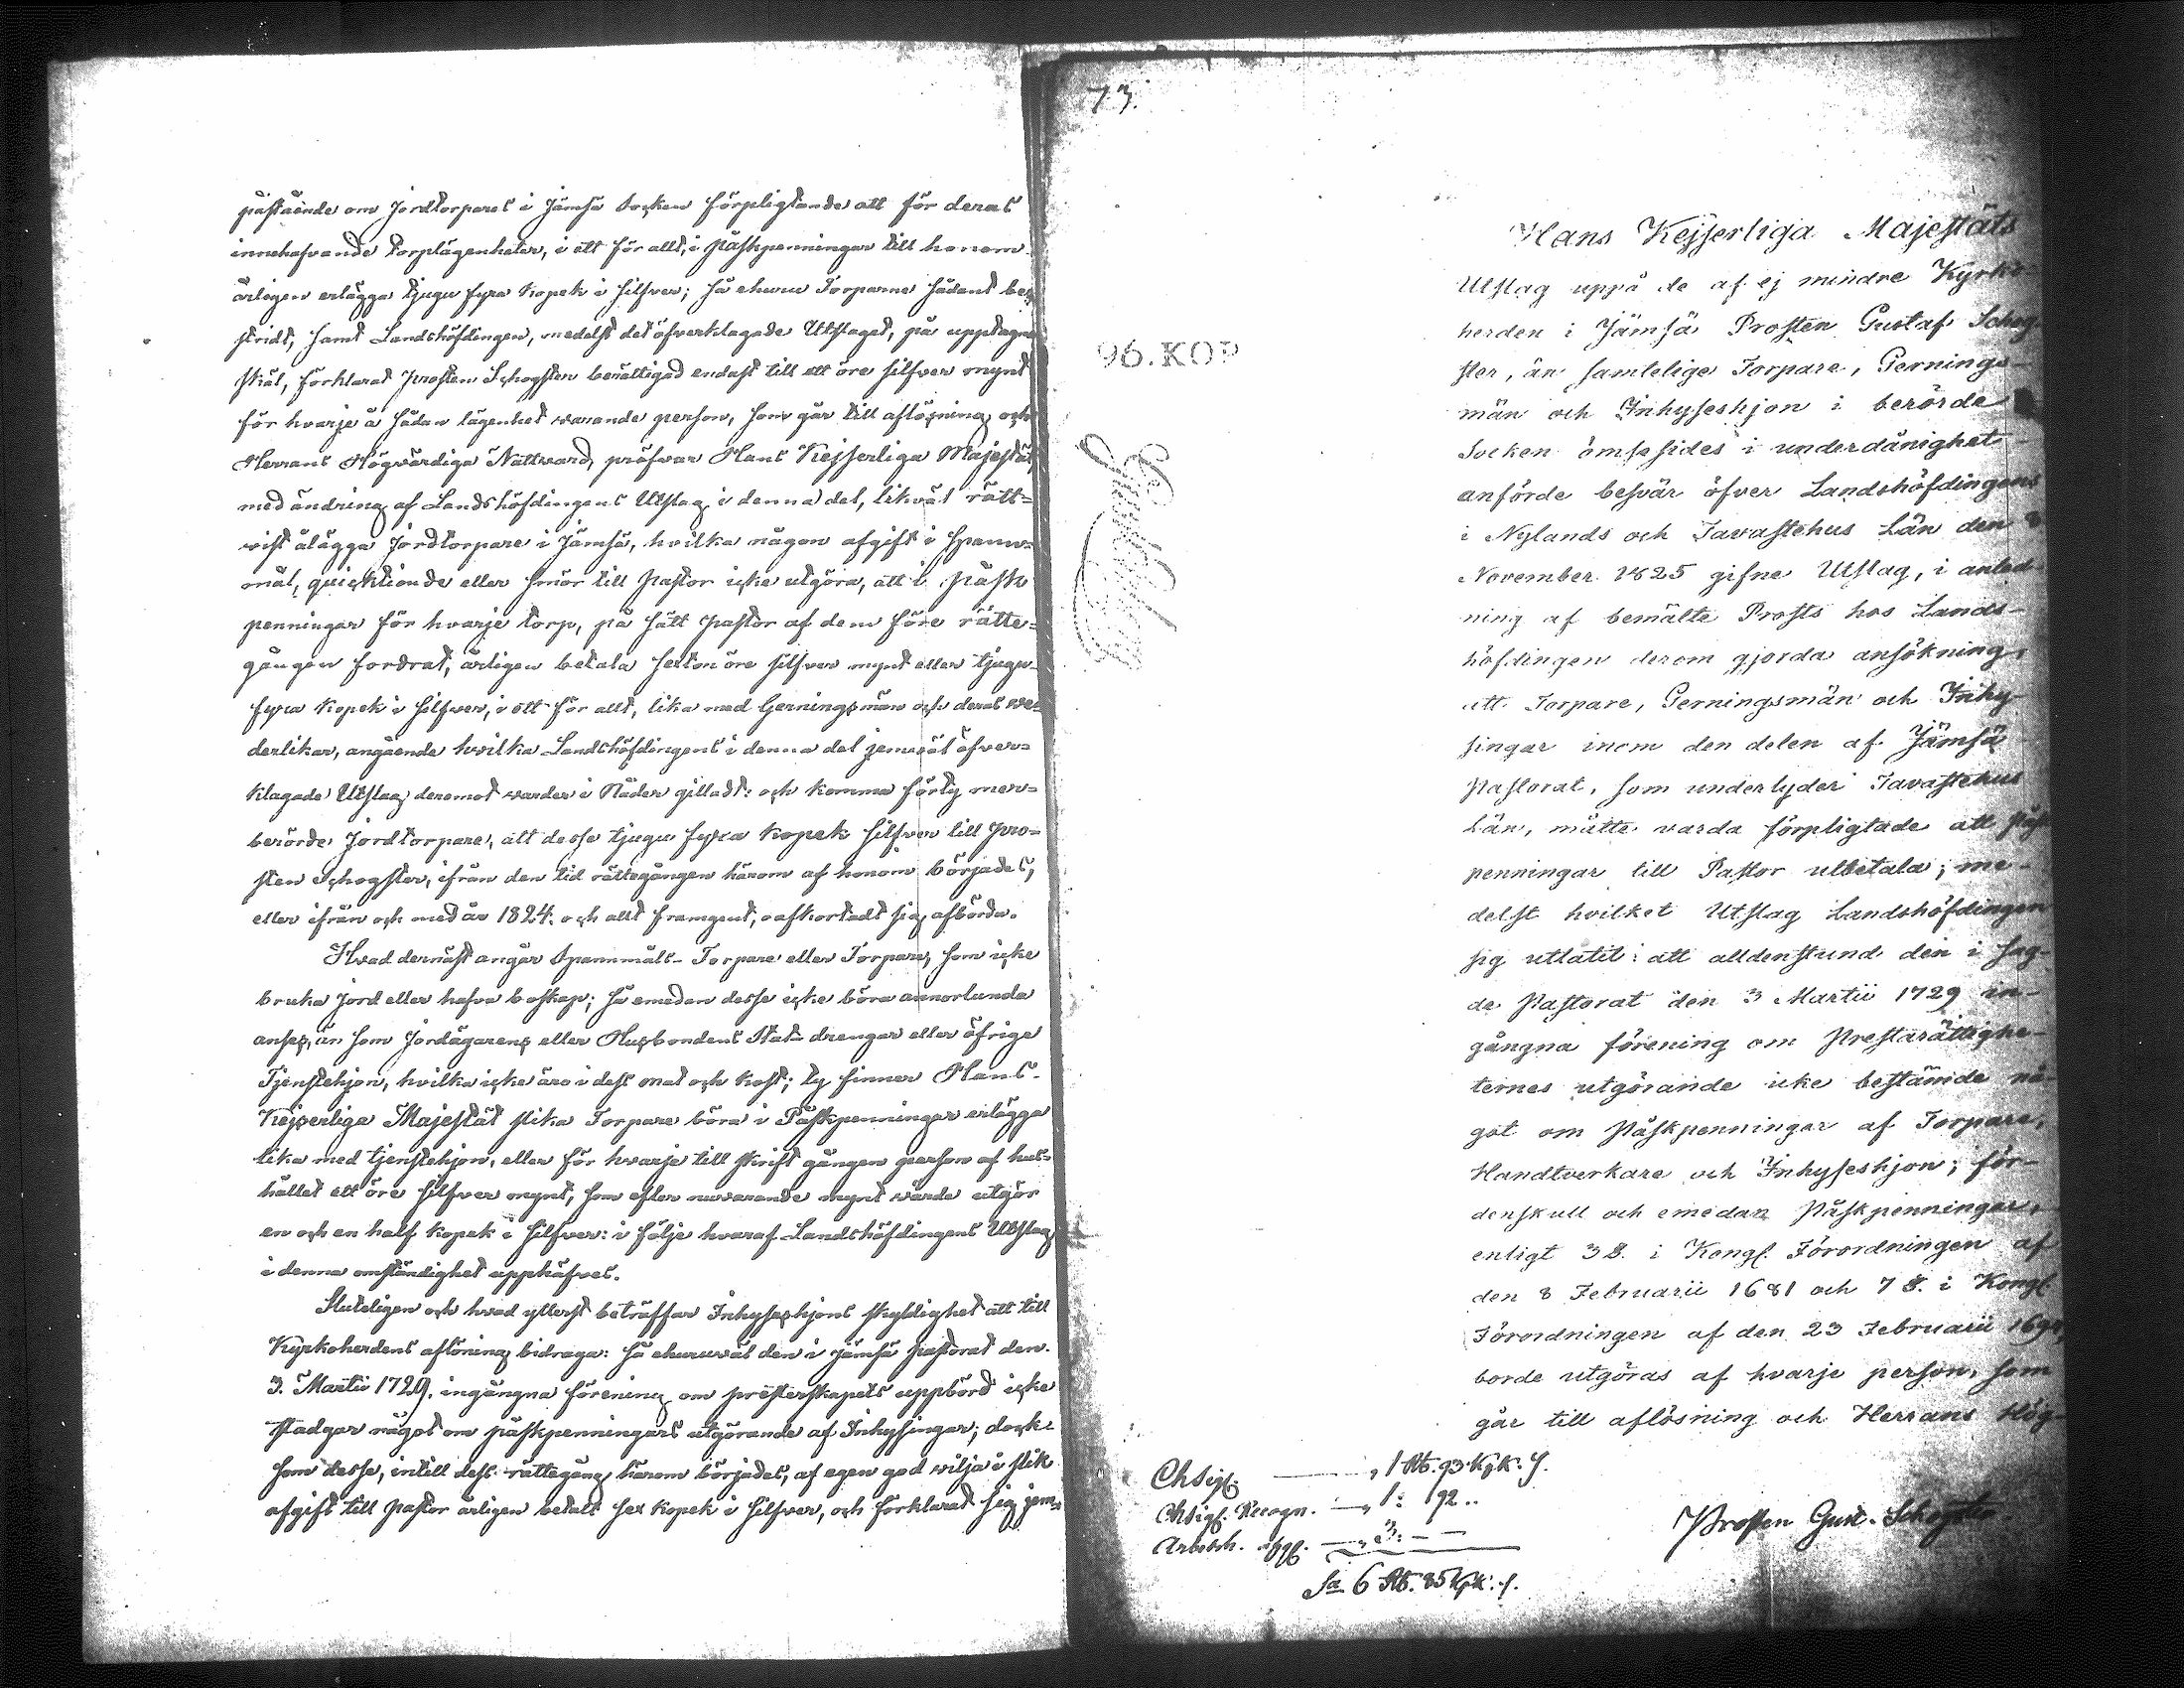 påstående om Jordtorpares i Jämsä Socken förpligtande att för deras
innehafvande torplägenheter, i ett för allt, i Påskpenningar till honom
årligen erlägga tjugu fyra kopek i silfver; så ehuru Torparne sådant be-
stridt, samt Landshöfdingen, medelst det öfverklagade Utslaget, på upptagne
skäl, förklarat Prosten Schogster berättigad endast till ett öre silfver mynt
för hvarje å sådan lägenhet varande person, som går till aflösning och
Herrans Högvärdiga Nattvard, pröfvar Hans Kejserliga Majestät
med ändring af Landshöfdingens Utslag i denna del, likväl rätt-
vist ålägga Jordtorpare i Jämsä, hvilka någon afgift i Spann-
mål, quicktionde eller smör till Pastor icke utgöra, att i Påsk-
penningar för hvarje torp, på sätt Pastor af dem före rätte-
gången fordrat, årligen betala sexton öre silfver mynt eller tjugu-
fyra kopek i silfver, i ett för allt, lika med Gerningsmän och deras ve-
derlikar, angående hvilka Landshöfdingens i denna del jemväl öfver-
klagade Utslag deremot varder i Nåder gilladt: och komma förty mer-
berörde Jordtorpare, att desse tjugu fyra kopek silfver till Pro-
sten Schogster, ifrån den tid rättegången härom af honom börjades,
eller ifrån och med år 1824. och allt framgent, oafkortadt sig afbörda.
Hvad dernäst angår Spannmåls-Torpare eller Torpare, som icke
bruka jord eller hafva boskap; så emedan desse icke böra annorlunda
anses, än som Jordägarens eller Husbondens Statdrengar eller öfrige
Tjenstehjon, hvilka icke äro i dess mat och kost; Ty finner Hans
Kejserliga Majestät slika Torpare böra i Påskpenningar erlägga
lika med tjenstehjon, eller för hvarje till skrift gången person af hus-
hållet ett öre silfver mynt, som efter nuvarande mynt värde utgör
en och en half kopek i silfver: i följe hvaraf Landshöfdingens Utslag
i denna omständighet upphäfves.
Sluteligen och hvad ytterst beträffar Inhyseshjons skyldighet att till
Kyrkoherdens aflöning bidraga: så ehuruväl den i Jämsä Pastorat den
3. Martii 1729. ingångna förening om presterskapets uppbörd icke
stadgar något om påskpenningars utgörande af Inhysingar; dock
som desse, intill dess rättegång härom börjades, af egen god vilja i slik
afgift till Pastor årligen betalt sex kopek i silfver, och förklarat sig jem-
73.
96.KOP
Hans Kejserliga Majestäts
Utslag uppå de af ej mindre Kyrko-
herden i Jämsä Prosten Gustaf Schog-
ster, än samtelige Torpare, Gernings-
män och Inhyseshjon i berörde
Socken ömsesides i underdånighet
anförde besvär öfver Landshöfdingens
i Nylands och Tavastehus Län den 8
November 1825 gifne Utslag, i anled-
ning af bemälte Prosts hos Lands-
höfdingen derom gjorda ansökning,
att Torpare, Gerningsmän och Inhy-
singar inom den delen af Jämsä
Pastorat, som underlyder Tavastehus
Län, måtte varda förpligtade att Påsk
penningar till Pastor utbetala; me-
delst hvilket Utslag Landshöfdingen
sig utlåtit: att alldenstund den i sag-
de Pastorat den 3 Martii 1729 in-
gångna förening om Prestarättighe-
ternes utgörande icke bestämde nå-
got om Påskpenningar af Torpare,
Handtverkare och Inhyseshjon; för-
denskull och emedan Påskpenningar,
enligt 3 §. i Kongl. Förordningen af
den 8 Februarii 1681 och 7 §. i Kongl.
Förordningen af den 23 Februarii
borde utgöras af hvarje person, som
går till aflösning och Herrans Hög
Chsigf. 1 Rb. 93 Kpk. S.
Chsigf. Recogn. 1: 192..
3: — —
Sa 6 Rb. 85 Kpk. S.
Prosten Gust. Schogster